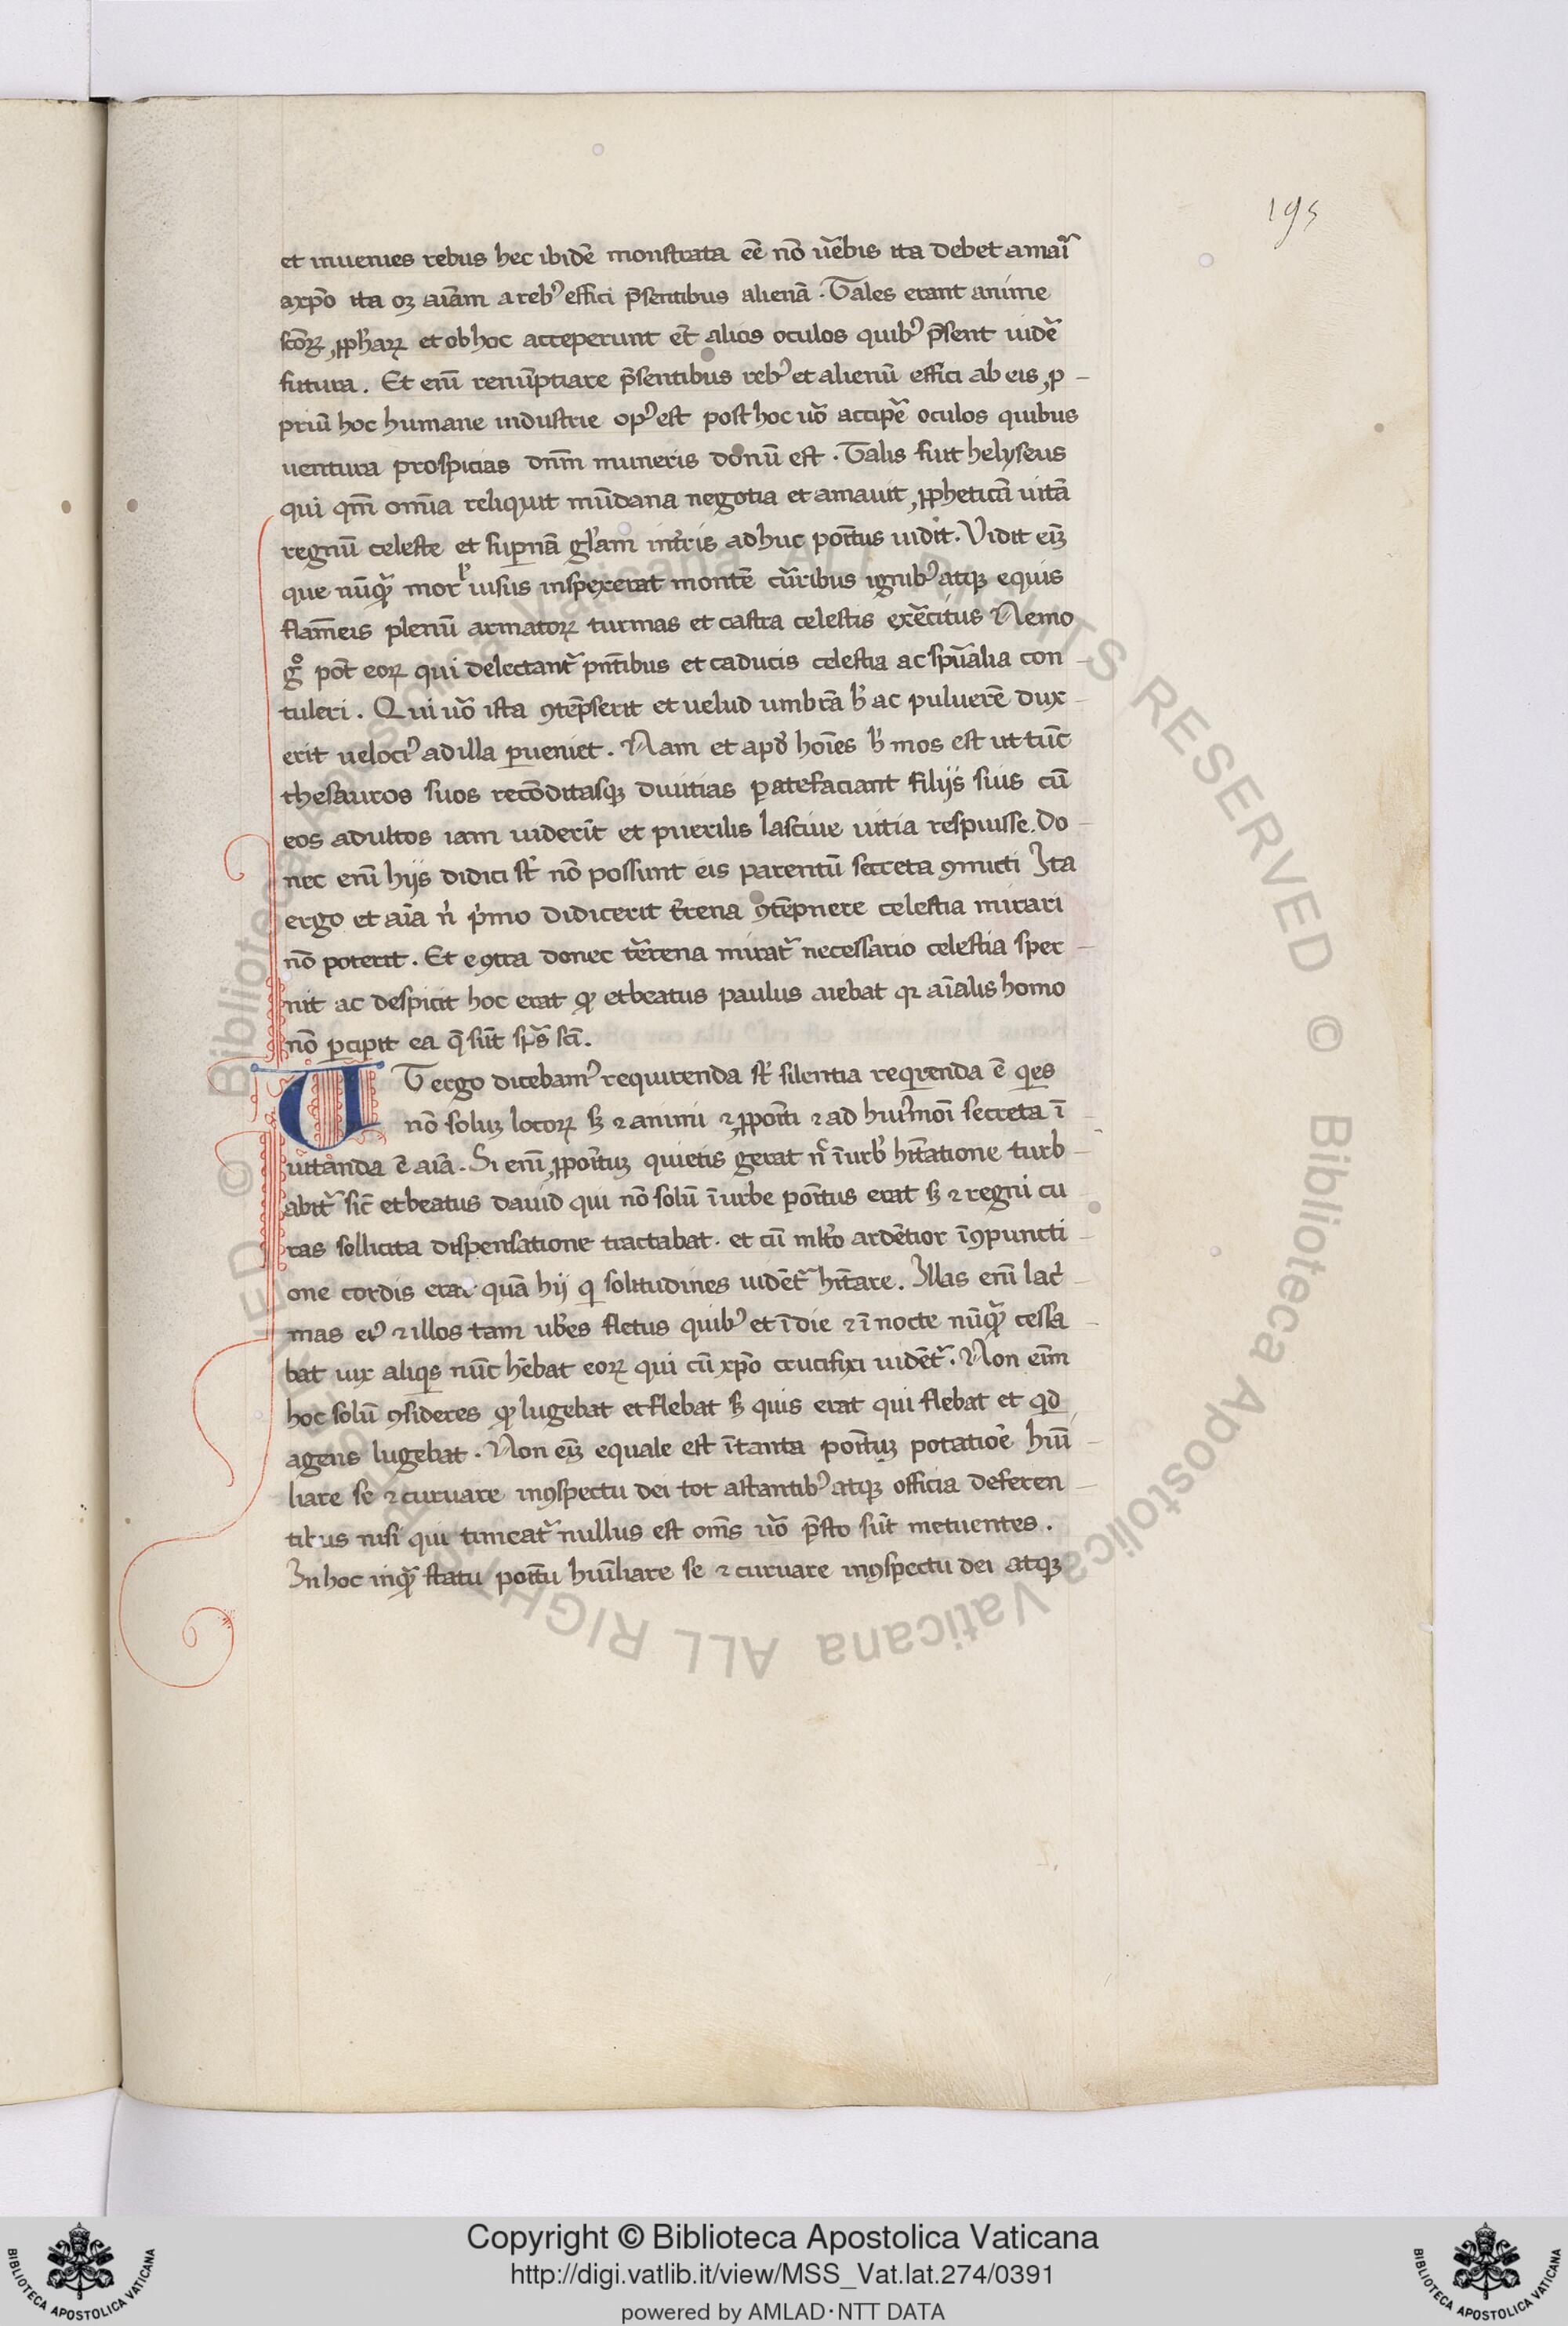 195
et inuenies rebus hec ibidē monstrata eē nō ūebis ita debet amarī
axp̄o ita oꝫ aīam a rebꝰ effici p̄sentibus alienā . Tales erant anime
scōꝝ ꝓphaꝝ et ob hoc acceperunt et̄ alios oculos quibꝰ p̄sent uidē
futura . Et enī renūptiare p̄sentibus rebꝰ et alienū effici ab eis ꝓ-
priū hoc humane industrie opꝰ est post hoc uō accipē oculos quibus
uentura prospicias dn̄m muneris donū est . Talis fuit helyseus
qui qm̄ omīa reliquit mūdana negotia et amauit ꝓpheticā uitā
regnū celeste et suꝑnā gl̄am int̄ris adhuc poītus uidit . Vidit eīꝫ
que nūꝙ̄ mor l' uisus inspexerat montē cūribus ignibꝰ atqꝫ equis
flam̄eis plenū armatoꝝ turmas et castra celestis exēcitus Nemo
gͦ pot̄ eoꝝ qui delectant᷑ pn̄tibus et caducis celestia ac spūalia con-
tuleri . Qui uō ista ꝯtēpserit et uelud umbrā h' ac puluerē dux-
erit uelociꝰ ad illa ꝑueniet . Nam et apd' hoīes h' mos est ut tūc
thesauros suos recōditasqꝫ diuitias patefaciant filijs suis cū
eos adultos iam uiderīt et puerilis lasciue uitia respuisse . Do-
nec enī hijs didici st' nō possunt eis parentū secreta ꝯmicti Ita
ergo et aīa n' p'mo didicerit t̄rena ꝯtēpnere celestia mirari
nō poterit . Et eꝯtra donec tērena mirat᷑ necessario celestia sper-
nit ac despicit hoc erat qꝫ et beatus paulus aiebat qꝛ aīalis homo
nō ꝑcipit ea q̄ sūt sp̄s sc̄i .
UT ergo dicebamꝰ requirenda st' silentia reqͥrenda ē qͥes
nō soluꝫ locoꝝ sꝫ ⁊ animi ⁊ ꝓpoīti ⁊ ad hiuꝰmoī secreta ī-
uitanda ē aīa . Si enī ꝓpoītuꝫ quietis gerat n̄ ī urb' hītatione turb-
abit᷑ sic̄ et beatus dauid qui nō solū ī urbe poītus erat sꝫ ⁊ regni cu
ras sollicita dispensatione tractabat . et cū mlt̄o ardētior ī ꝯpuncti-
one cordis erat quā hij qͥ solitudines uidēt᷑ hītare . Illas enī lac'-
mas eiꝰ ⁊ illos tam ub̄es fletus quibꝰ et ī die ⁊ ī nocte nūꝙ̄ cessa-
bat uix aliqͥs nūc hēbat eoꝝ qui cū xp̄o crucifixi uidēt᷑ . Non eīm
hoc solū ꝯsideres qꝫ lugebat et flebat sꝫ quis erat qui flebat et qd
agens lugebat . Non eīꝫ equale est ī tanta poītuꝫ potatiōe hūi-
liare se ⁊ curuare in ꝯspectu dei tot astantibꝰ atqꝫ officia deferen-
tibus nisi qui timeat᷑ nullus est om̄s uō p̄sto sūt metuentes .
In hoc inꝙ̄ statu poītu hūiliare se ⁊ curuare in ꝯspectu dei atqꝫ
Copyright © Biblioteca Apostolica Vaticana
http://digi.vatlib.it/view/MSS_Vat.lat.274/0391
powered by AMLAD·NTT DATA